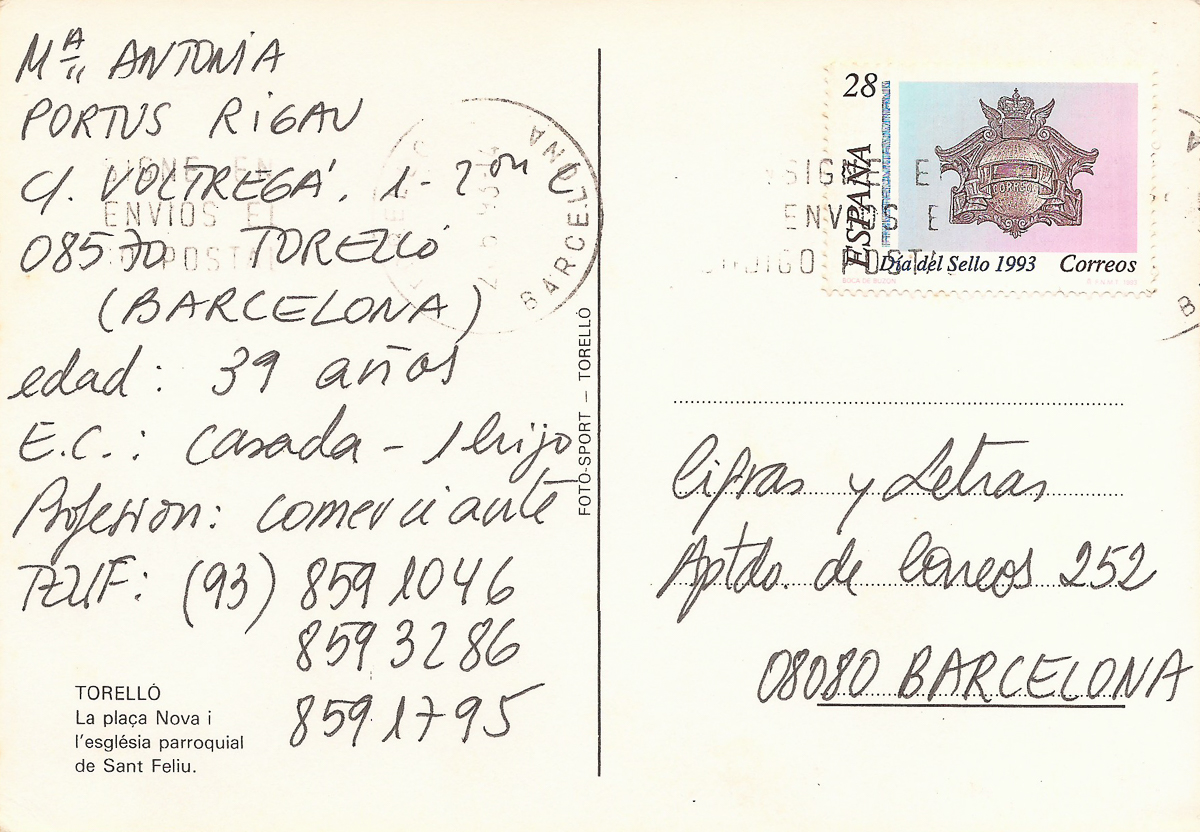 Mª ANTONIA
PORTUS RIGAU
C/. VOLTREGÁ, 1-2on
08570 TORELLÓ
(BARCELONA)
edad: 39 años
E.C.: casada - 1 hijo
Profesion: comerciante
TELF: (93) 859 1046
859 3286
859 1795
TORELLÓ
La plaça Nova i
l'església parroquial
de Sant Feliu.
FOTO-SPORT – TORELLÓ
SIGNE EN
ENVIOS EL
POSTAL
BARCELONA
28
ESPAÑA
CORREOS
Día del Sello 1993 Correos
BOCA DE BUZON
SIGNE E
ENVIOS E
CODIGO POSTAL
Cifras y Letras
Aptdo. de Correos 252
08080 BARCELONA